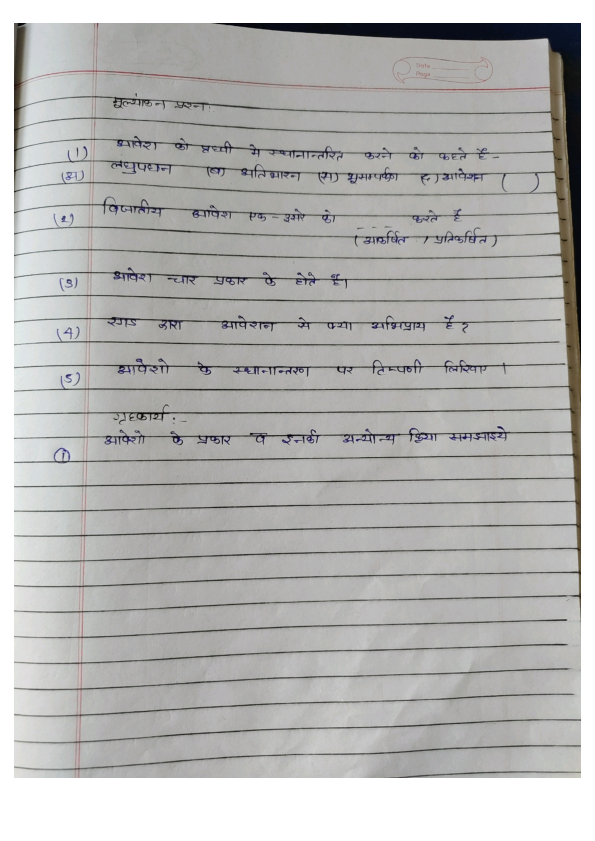 Date
Page
मूल्यांकन प्रश्न:
(1) आवेश को पृथ्वी में स्थानान्तरित करने को कहते हैं -
(अ) लघुपथन (ब) अतिभारन (स) भूसम्पर्कन (द) आवेशन ( )
(2) विजातीय आवेश एक-दुसरे को ---- करते हैं
(आकर्षित / प्रतिकर्षित)
(3) आवेश चार प्रकार के होते हैं।
(4) रगड द्वारा आवेशन से क्या अभिप्राय है ?
(5) आवेशो के स्थानान्तरण पर टिप्पणी लिखिए।
गृहकार्य :-
① आवेशो के प्रकार व इनकी अन्योन्य क्रिया समझाइये